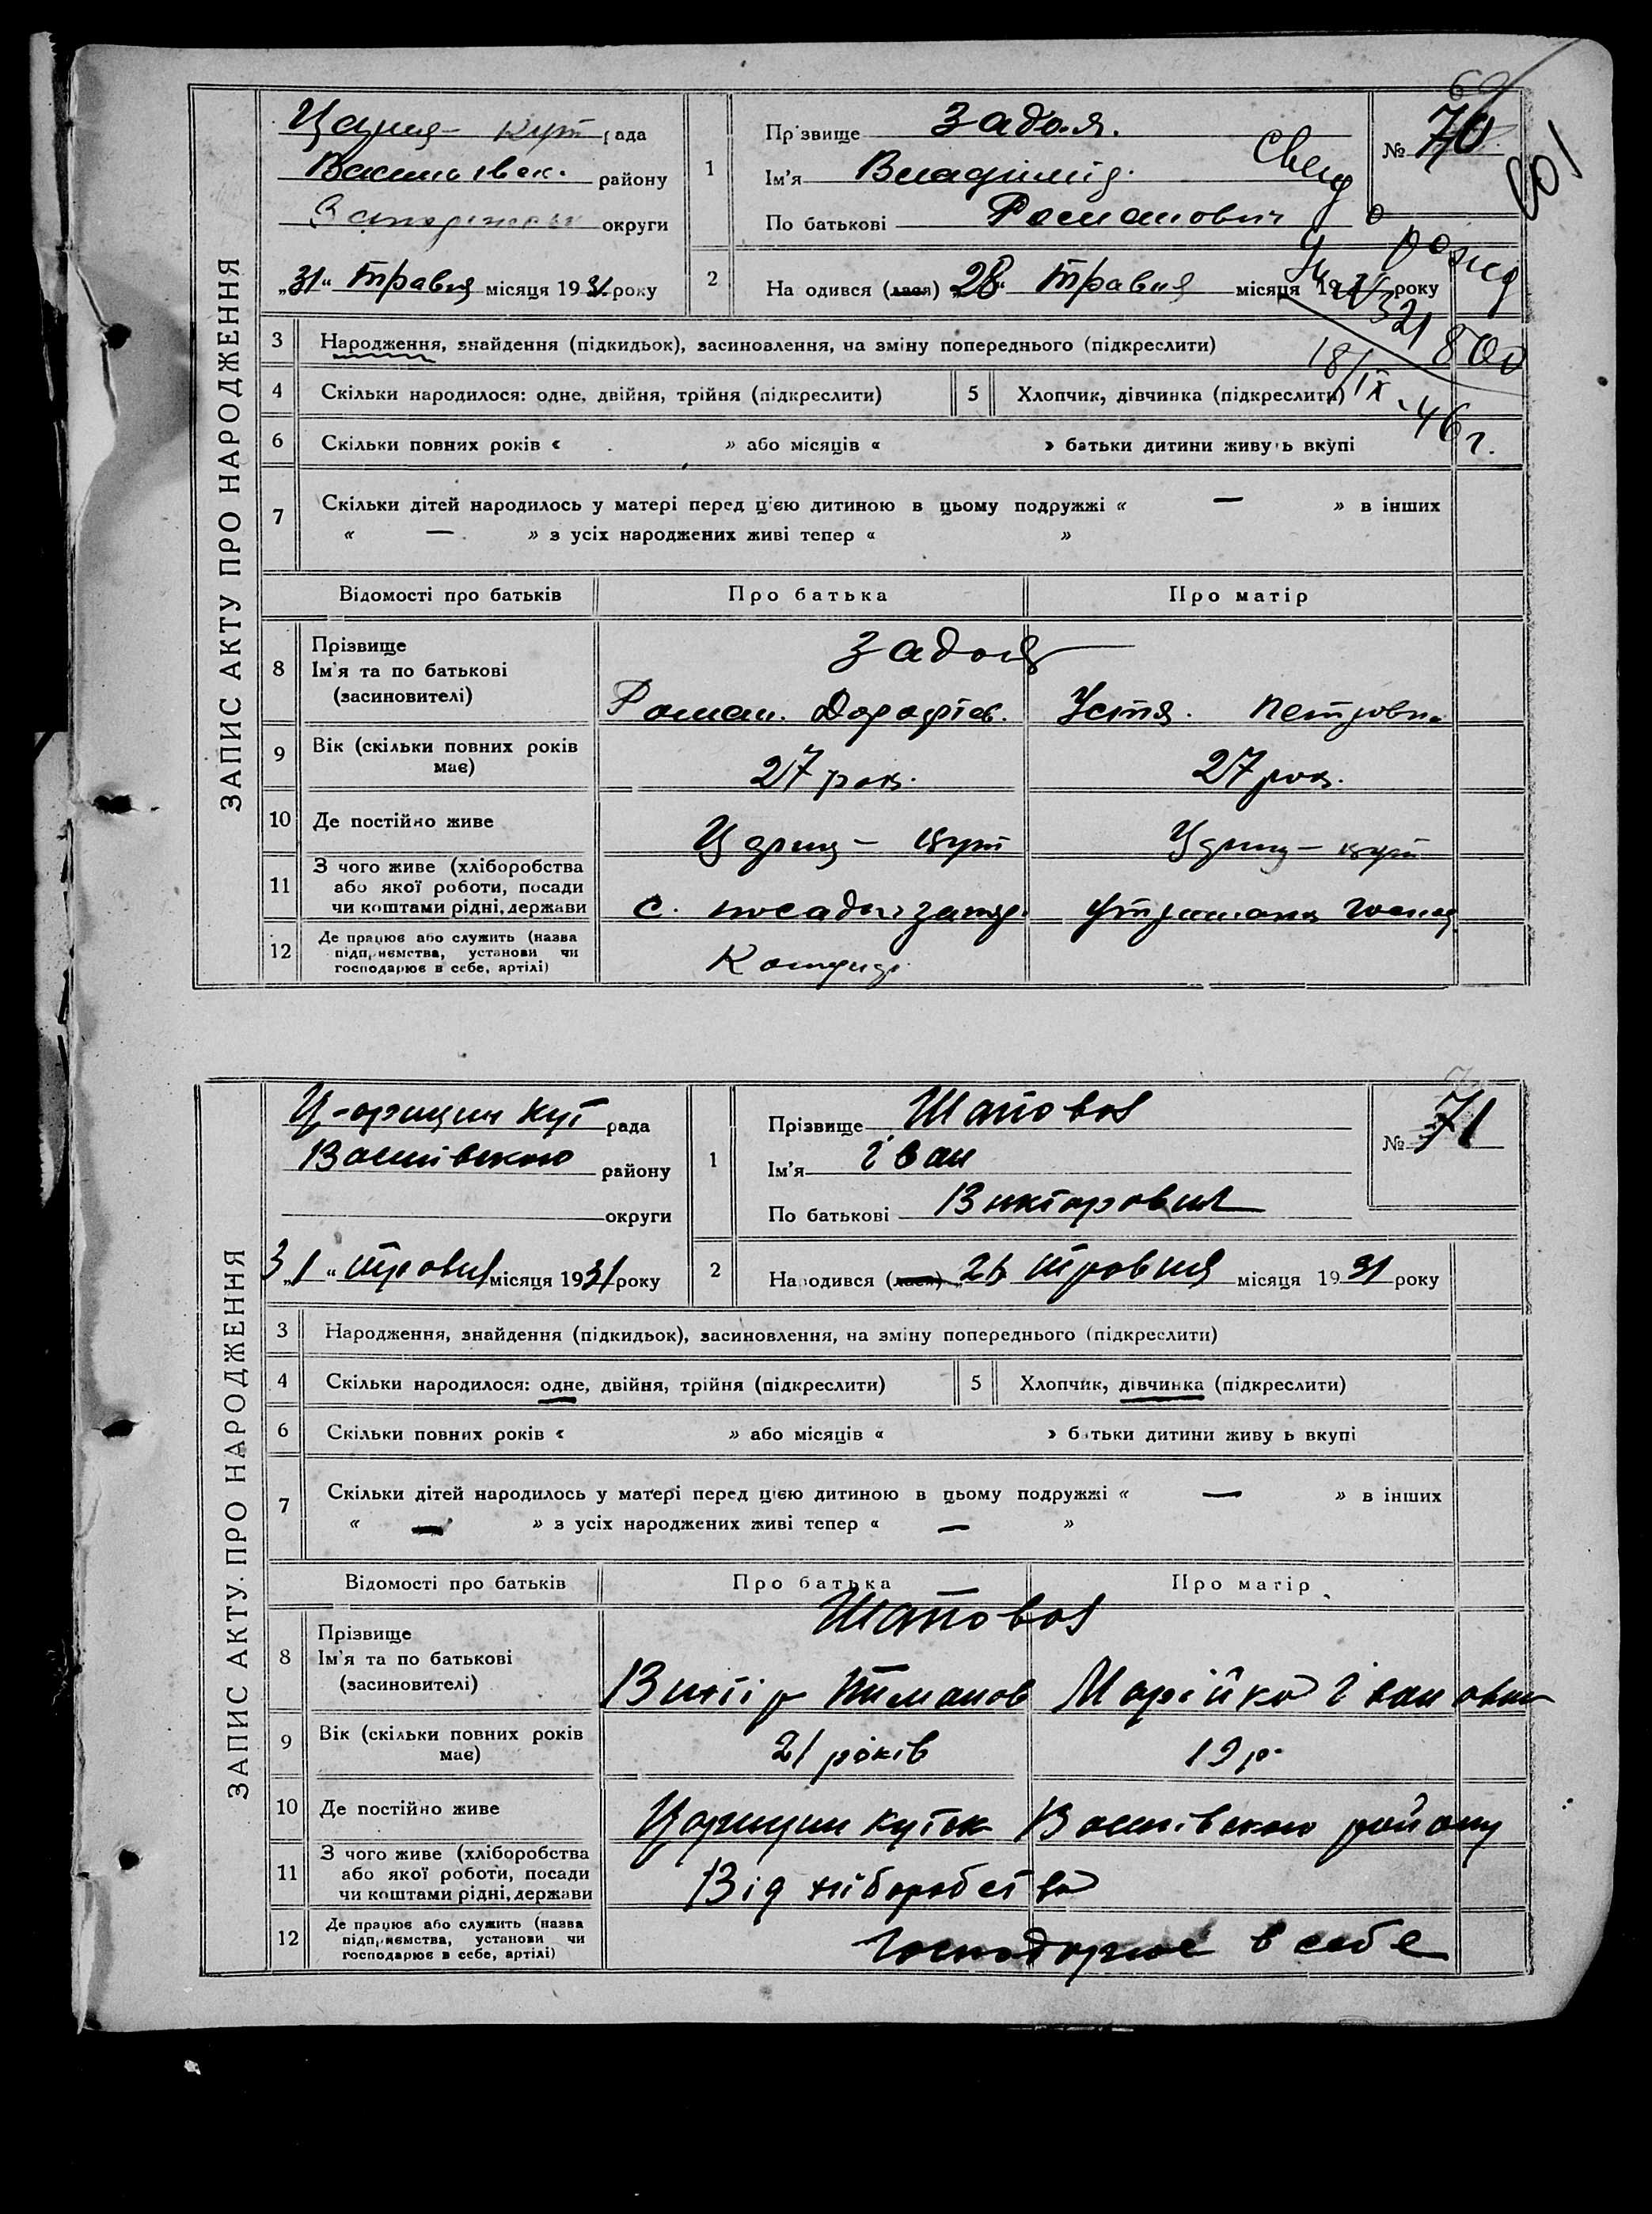 ЗАПИС АКТУ ПРО НАРОДЖЕННЯ
69
Кут рада
Василівск. району
округи
„31“ травня місяця 1931 року
1
Прізвище Задоя.
Ім'я Владимір.
По батькові Романович
№ 70
Свид
о рожд
2
На одився (лася) „28“ травня місяця 1931 року
18/IX-46 г.
3 Народження, знайдення (підкидьок), засиновлення, на зміну попереднього (підкреслити)
4 Скільки народилося: одне, двійня, трійня (підкреслити)
5 Хлопчик, дівчинка (підкреслити)
6 Скільки повних років « » або місяців « » батьки дитини живуть вкупі
7 Скільки дітей народилось у матері перед цією дитиною в цьому подружжі « — » в інших
« — » з усіх народжених живі тепер « »
Відомості про батьків
Про батька
Про матір
8 Прізвище
Ім'я та по батькові
(засиновителі)
Задоя
Роман. Дорофіев.
Устя. Петровна
9 Вік (скільки повних років
має)
27 рок.
27 рок.
10 Де постійно живе
Цариц-кут
Цариц-кут
11 З чого живе (хліборобства
або якої роботи, посади
чи коштами рідні, держави
с. посади
12 Де працює або служить (назва
підприємства, установи чи
господарює в себе, артілі)
ЗАПИС АКТУ ПРО НАРОДЖЕННЯ
Царицин кут рада
Василівского району
округи
„31“ травня місяця 1931 року
1
Прізвище Шаповал
Ім'я Іван
По батькові Викторович
№ 71
2
Народився (лася) 26 травня місяця 1931 року
3 Народження, знайдення (підкидьок), засиновлення, на зміну попереднього (підкреслити)
4 Скільки народилося: одне, двійня, трійня (підкреслити)
5 Хлопчик, дівчинка (підкреслити)
6 Скільки повних років « » або місяців « » батьки дитини живу ь вкупі
7 Скільки дітей народилось у матері перед цією дитиною в цьому подружжі « — » в інших
« — » з усіх народжених живі тепер « — »
Відомості про батьків
Про батька
Про матір
8 Прізвище
Ім'я та по батькові
(засиновителі)
Шаповал
Марійка Івановна
9 Вік (скільки повних років
має)
21 років
19 р.
10 Де постійно живе
Царицин Куток Василівского району
11 З чого живе (хліборобства
або якої роботи, посади
чи коштами рідні, держави
Від хліборобства
12 Де працює або служить (назва
підприємства, установи чи
господарює в себе, артілі)
Господарює в себе